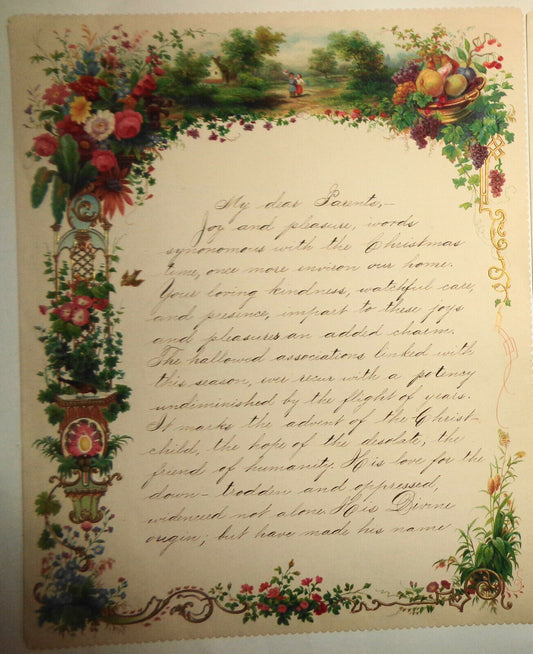 My dear Parents,-
Joy and pleasure, words
synonomous with the Christmas
time, once more environ our home.
Your loving kindness, watchful care,
and presence, impart to these joys
and pleasures an added charm.
The hallowed associations linked with
this season, ever recur with a potency
undiminished by the flight of years.
It marks the advent of the Christ-
child, the hope of the desolate, the
friend of humanity. His love for the
down-trodden and oppressed,
evidenced not alone His Divine
origin; but have made his name